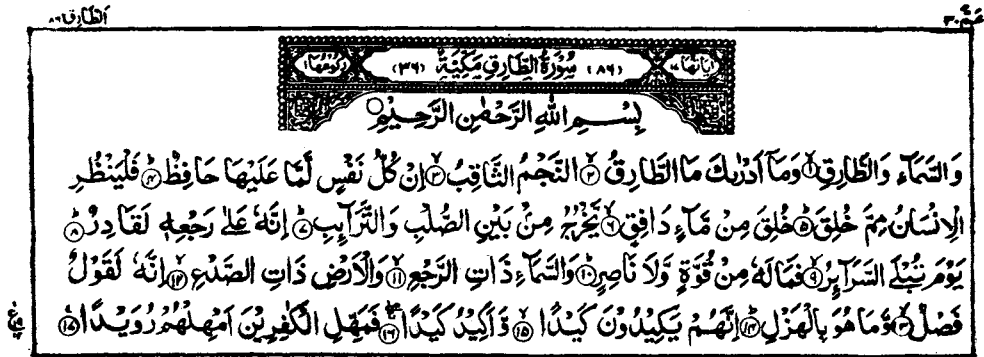 عمّ ٣٠
الطارق ٨٦
اٰیَاتُهَا ١٧ (٨٦) سُوْرَةُ الطَّارِقِ مَكِّيَّةٌ (٣٦) رُكُوْعُهَا ١
بِسْمِ اللهِ الرَّحْمٰنِ الرَّحِيْمِ
وَالسَّمَآءِ وَالطَّارِقِ ۙ﴿١﴾ وَمَآ اَدْرٰىكَ مَا الطَّارِقُ ۙ﴿٢﴾ النَّجْمُ الثَّاقِبُ ۙ﴿٣﴾ اِنْ كُلُّ نَفْسٍ لَّمَّا عَلَيْهَا حَافِظٌ ؕ﴿٤﴾ فَلْيَنْظُرِ
الْاِنْسَانُ مِمَّ خُلِقَ ؕ﴿٥﴾ خُلِقَ مِنْ مَّآءٍ دَافِقٍ ۙ﴿٦﴾ يَّخْرُجُ مِنْۢ بَيْنِ الصُّلْبِ وَالتَّرَآىِٕبِ ؕ﴿٧﴾ اِنَّهٗ عَلٰى رَجْعِهٖ لَقَادِرٌ ؕ﴿٨﴾
يَوْمَ تُبْلَى السَّرَآىِٕرُ ۙ﴿٩﴾ فَمَا لَهٗ مِنْ قُوَّةٍ وَّلَا نَاصِرٍ ؕ﴿١٠﴾ وَالسَّمَآءِ ذَاتِ الرَّجْعِ ۙ﴿١١﴾ وَالْاَرْضِ ذَاتِ الصَّدْعِ ۙ﴿١٢﴾ اِنَّهٗ لَقَوْلٌ
فَصْلٌ ۙ﴿١٣﴾ وَّمَا هُوَ بِالْهَزْلِ ؕ﴿١٤﴾ اِنَّهُمْ يَكِيْدُوْنَ كَيْدًا ۙ﴿١٥﴾ وَّاَكِيْدُ كَيْدًا ۚۖ﴿١٦﴾ فَمَهِّلِ الْكٰفِرِيْنَ اَمْهِلْهُمْ رُوَيْدًا ﴿١٧﴾